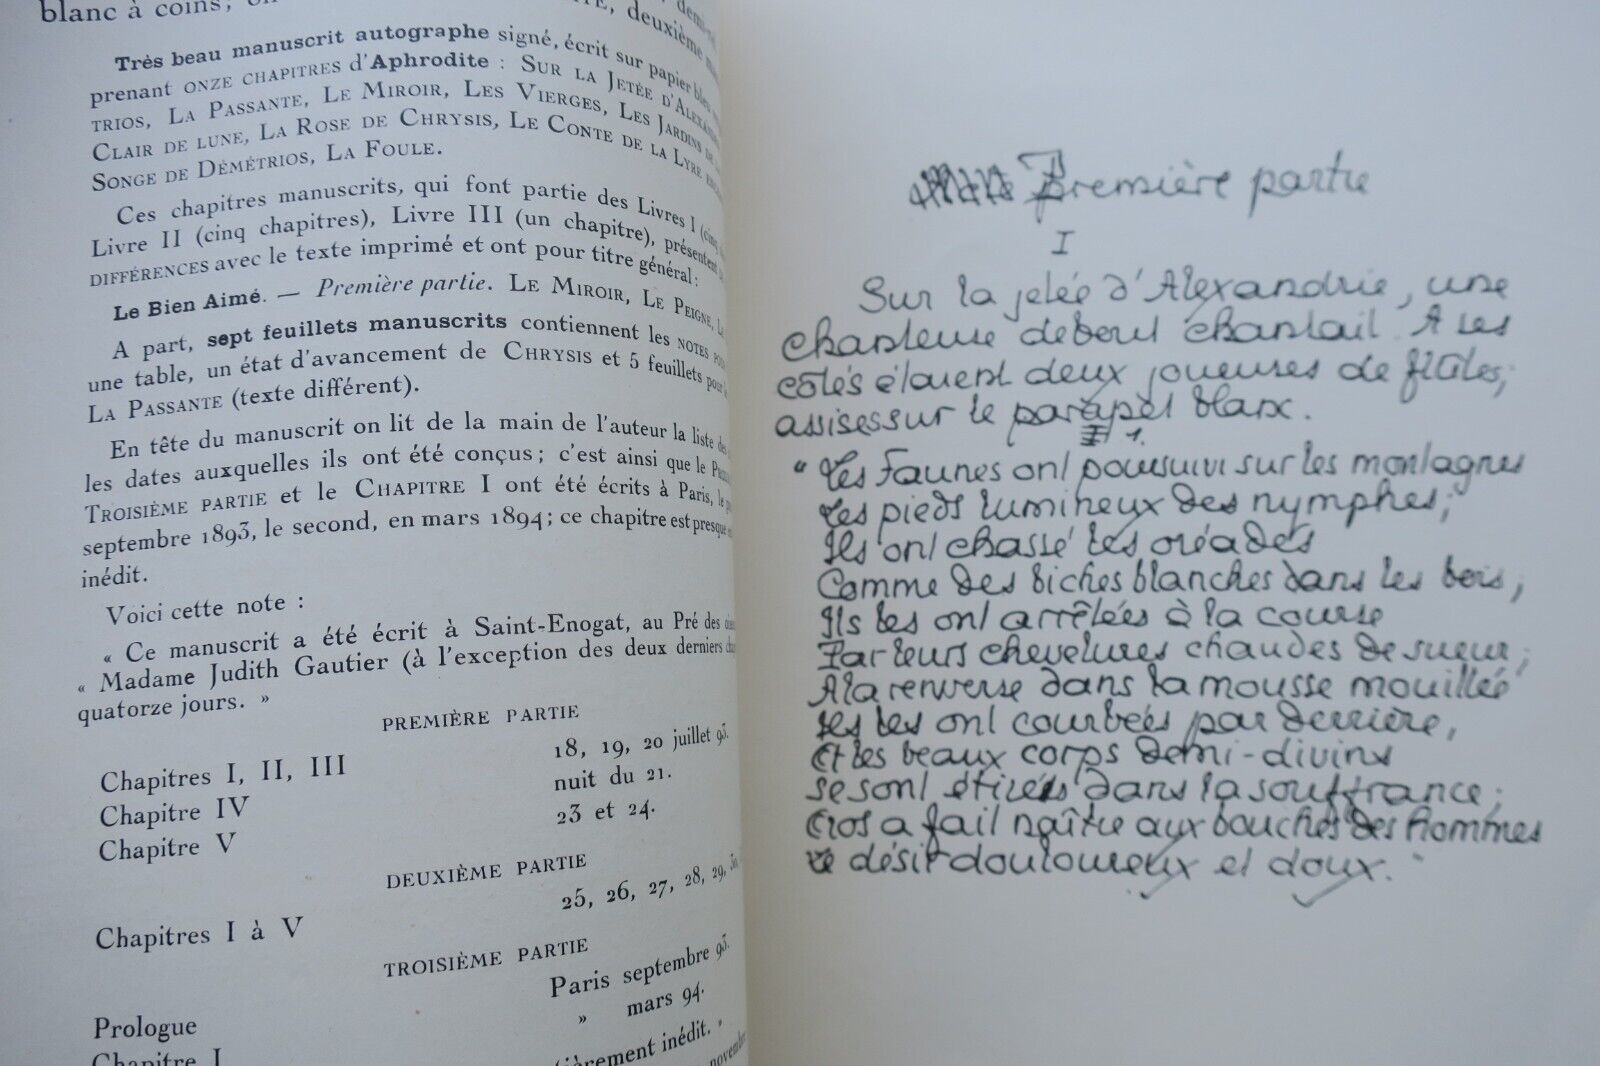 blanc à coins;
deuxième
Très beau manuscrit autographe signé, écrit sur papier bleu
prenant ONZE CHAPITRES d'Aphrodite : SUR LA JETÉE D'ALEXAN
TRIOS, LA PASSANTE, LE MIROIR, LES VIERGES, LES JARDINS DE
CLAIR DE LUNE, LA ROSE DE CHRYSIS, LE CONTE DE LA LYRE
SONGE DE DÉMÉTRIOS, LA FOULE.
Ces chapitres manuscrits, qui font partie des Livres I (cinq
Livre II (cinq chapitres), Livre III (un chapitre), présentent
DIFFÉRENCES avec le texte imprimé et ont pour titre général :
Le Bien Aimé. — Première partie. LE MIROIR, LE PEIGNE,
A part, sept feuillets manuscrits contiennent les NOTES
une table, un état d'avancement de CHRYSIS et 5 feuillets pour
LA PASSANTE (texte différent).
En tête du manuscrit on lit de la main de l'auteur la liste des
les dates auxquelles ils ont été conçus ; c'est ainsi que le
TROISIÈME PARTIE et le CHAPITRE I ont été écrits à Paris, le
septembre 1893, le second, en mars 1894 ; ce chapitre est presque
inédit.
Voici cette note :
« Ce manuscrit a été écrit à Saint-Enogat, au Pré des
« Madame Judith Gautier (à l'exception des deux derniers
quatorze jours. »
PREMIÈRE PARTIE
Chapitres I, II, III 18, 19, 20 juillet 93.
Chapitre IV nuit du 21.
Chapitre V 23 et 24.
DEUXIÈME PARTIE
Chapitres I à V 25, 26, 27, 28, 29, 30
TROISIÈME PARTIE
Prologue Paris septembre 93.
Chapitre I » mars 94.
inédit. »
novembre
Première partie
I
Sur la jetée d'Alexandrie, une
chanteuse debout chantait. A ses
côtés étaient deux joueuses de flûtes,
assises sur le parapet blanc.
1.
" Les Faunes ont poursuivi sur les montagnes
Les pieds lumineux des nymphes;
Ils ont chassé les oréades
Comme des biches blanches dans les bois;
Ils les ont arrêtées à la course
Par leurs chevelures chaudes de sueur;
A la renverse dans la mousse mouillée
Ils les ont courbées par derrière,
Et les beaux corps demi-divins
se sont étirés dans la souffrance;
Eros a fait naître aux bouches des hommes
le désir douloureux et doux. "